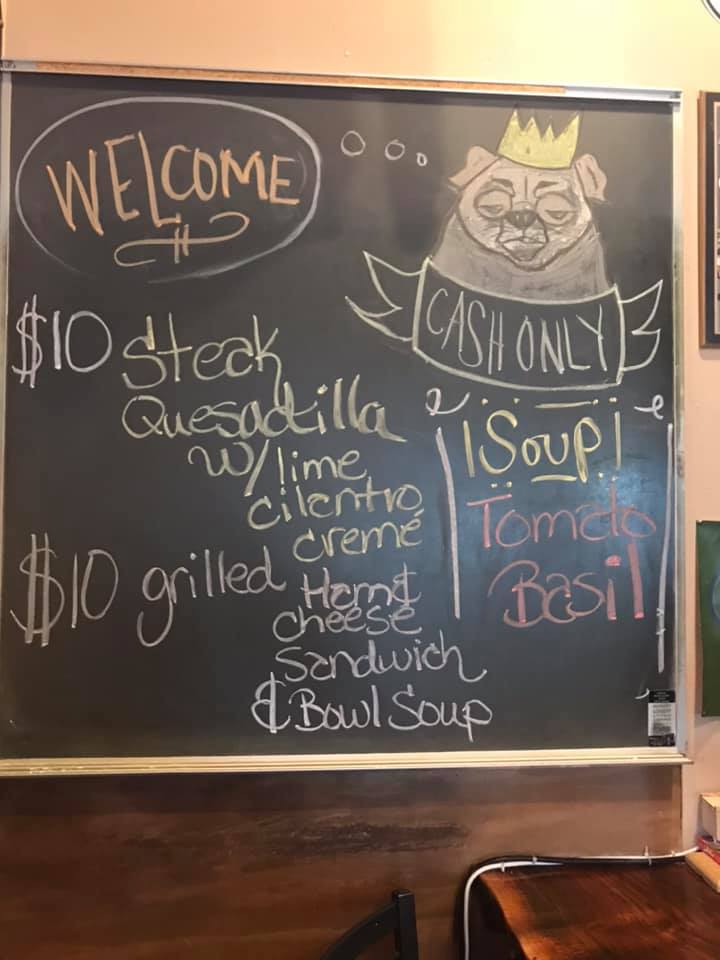 WELCOME
CASH ONLY
$10 Steak
Quesadilla
w/lime
cilantro
cremé
$10 grilled Ham &
cheese
Sandwich
& Bowl Soup
Soup
Tomato
Basil